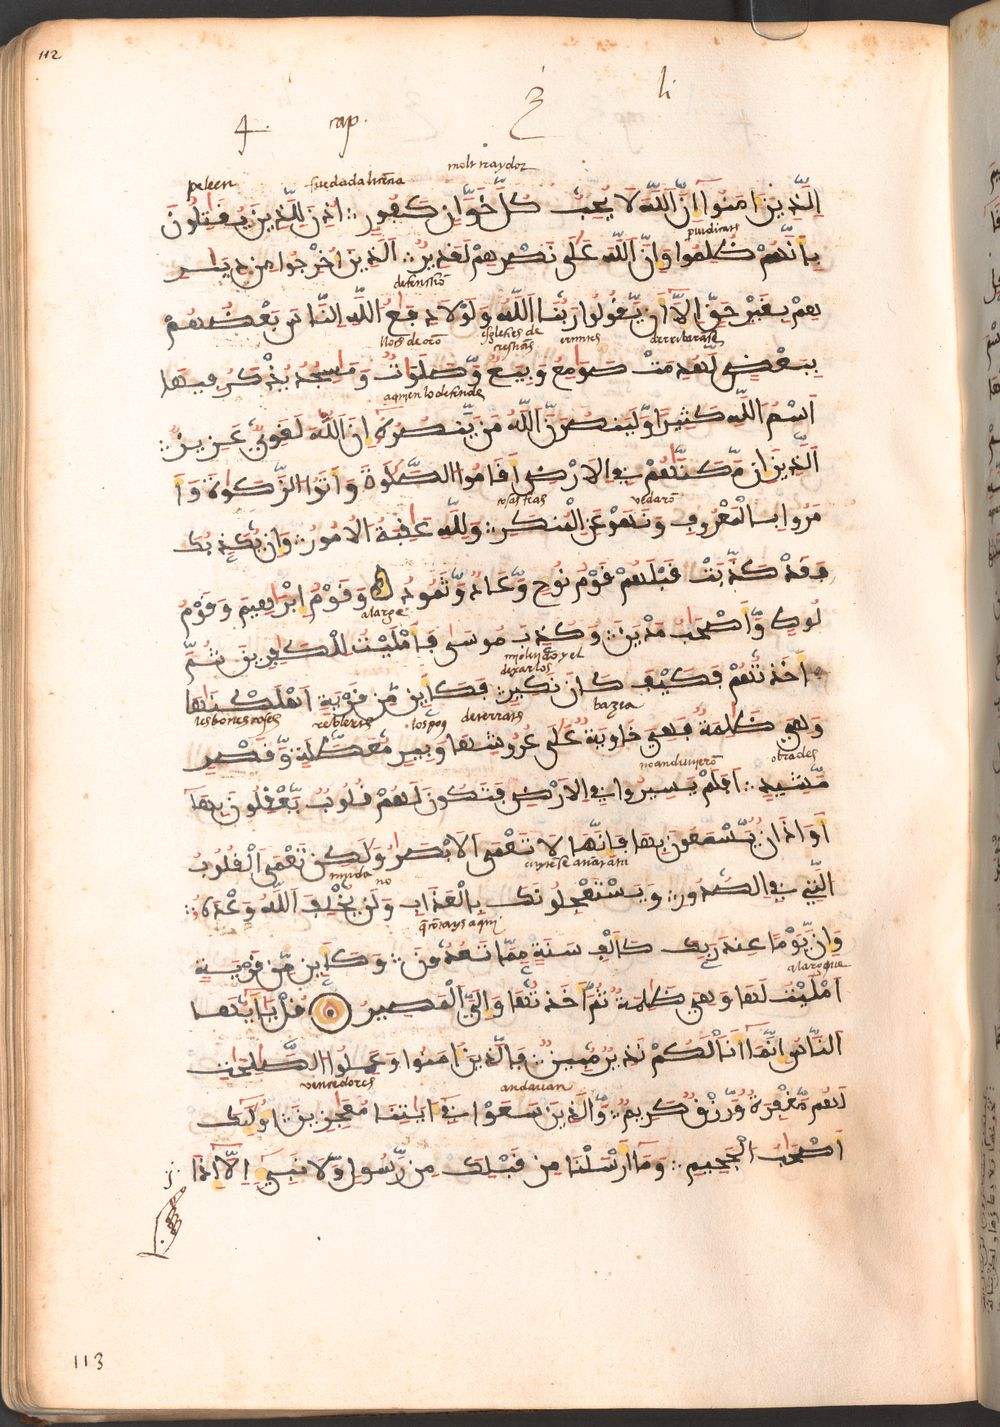 112
4. cap. 3 li
molt traydor
peleen fue dada licẽcia
الَّذِينَ ءَامَنُوا إِنَّ اللَّهَ لَا يُحِبُّ كُلَّ خَوَّانٍ كَفُورٍ ∴ أُذِنَ لِلَّذِينَ يُقَٰتِلُونَ
بِأَنَّهُمْ ظُلِمُوا وَإِنَّ اللَّهَ عَلَى نَصْرِهِمْ لَقَدِيرٌ ∴ الَّذِينَ أُخْرِجُوا مِن دِيَٰرِ
defenstiõ
هِمْ بِغَيْرِ حَقٍّ إِلَّا أَن يَّقُولُوا رَبُّنَا اللَّهُ وَلَوْلَا دِفَٰعُ اللَّهِ النَّاسَ بَعْضَهُمْ
llocs de orõ esglesies de crestians ermites derribaranse
بِبَعْضٍ لَّهُدِمَتْ صَوَٰمِعُ وَبِيَعٌ وَّصَلَوَٰتٌ وَّمَسَٰجِدُ يُذْكَرُ فِيهَا
aquien lo defiende
اسْمُ اللَّهِ كَثِيرًا وَّلَيَنصُرَنَّ اللَّهُ مَن يَّنصُرُهُ إِنَّ اللَّهَ لَقَوِيٌّ عَزِيزٌ ∴
الَّذِينَ إِن مَّكَّنَّٰهُمْ فِي الْأَرْضِ أَقَامُوا الصَّلَوٰةَ وَءَاتَوُا الزَّكَوٰةَ وَأَ
cosas feas vedarõ
مَرُوا بِالْمَعْرُوفِ وَنَهَوْا عَنِ الْمُنكَرِ ∴ وَلِلَّهِ عَٰقِبَةُ الْأُمُورِ ∴ وَإِن يُّكَذِّبُوكَ
فَقَدْ كَذَّبَتْ قَبْلَهُمْ قَوْمُ نُوحٍ وَّعَادٌ وَّثَمُودُ وَقَوْمُ إِبْرَٰهِيمَ وَقَوْمُ
alargue
لُوطٍ وَّأَصْحَٰبُ مَدْيَنَ ∴ وَكُذِّبَ مُوسَى فَأَمْلَيْتُ لِلْكَٰفِرِينَ ثُمَّ
أَخَذتُّهُمْ فَكَيْفَ كَانَ نَكِيرِ ∴ فَكَأَيِّن مِّن قَرْيَةٍ أَهْلَكْنَٰهَا
وَهِيَ ظَالِمَةٌ فَهِيَ خَاوِيَةٌ عَلَى عُرُوشِهَا وَبِيرٍ مُّعَطَّلَةٍ وَّقَصْرٍ
no anduvierõ
مَّشِيدٍ ∴ أَفَلَمْ يَسِيرُوا فِي الْأَرْضِ فَتَكُونَ لَهُمْ قُلُوبٌ يَّعْقِلُونَ بِهَا
أَوْ ءَاذَانٌ يَّسْمَعُونَ بِهَا فَإِنَّهَا لَا تَعْمَى الْأَبْصَٰرُ وَلَٰكِن تَعْمَى الْقُلُوبُ
الَّتِي فِي الصُّدُورِ ∴ وَيَسْتَعْجِلُونَكَ بِالْعَذَابِ وَلَن يُّخْلِفَ اللَّهُ وَعْدَهُ ∴
وَإِنَّ يَوْمًا عِندَ رَبِّكَ كَأَلْفِ سَنَةٍ مِّمَّا تَعُدُّونَ ∴ وَكَأَيِّن مِّن قَرْيَةٍ
alargue
أَمْلَيْتُ لَهَا وَهِيَ ظَالِمَةٌ ثُمَّ أَخَذتُّهَا وَإِلَيَّ الْمَصِيرُ قُلْ يَٰأَيُّهَا
النَّاسُ إِنَّمَا أَنَا لَكُمْ نَذِيرٌ مُّبِينٌ ∴ فَالَّذِينَ ءَامَنُوا وَعَمِلُوا الصَّٰلِحَٰتِ
vencedores andavan
لَهُم مَّغْفِرَةٌ وَّرِزْقٌ كَرِيمٌ ∴ وَالَّذِينَ سَعَوْا فِي ءَايَٰتِنَا مُعَٰجِزِينَ أُولَٰئِكَ
أَصْحَٰبُ الْجَحِيمِ ∴ وَمَا أَرْسَلْنَا مِن قَبْلِكَ مِن رَّسُولٍ وَّلَا نَبِيٍّ إِلَّا إِذَا
113